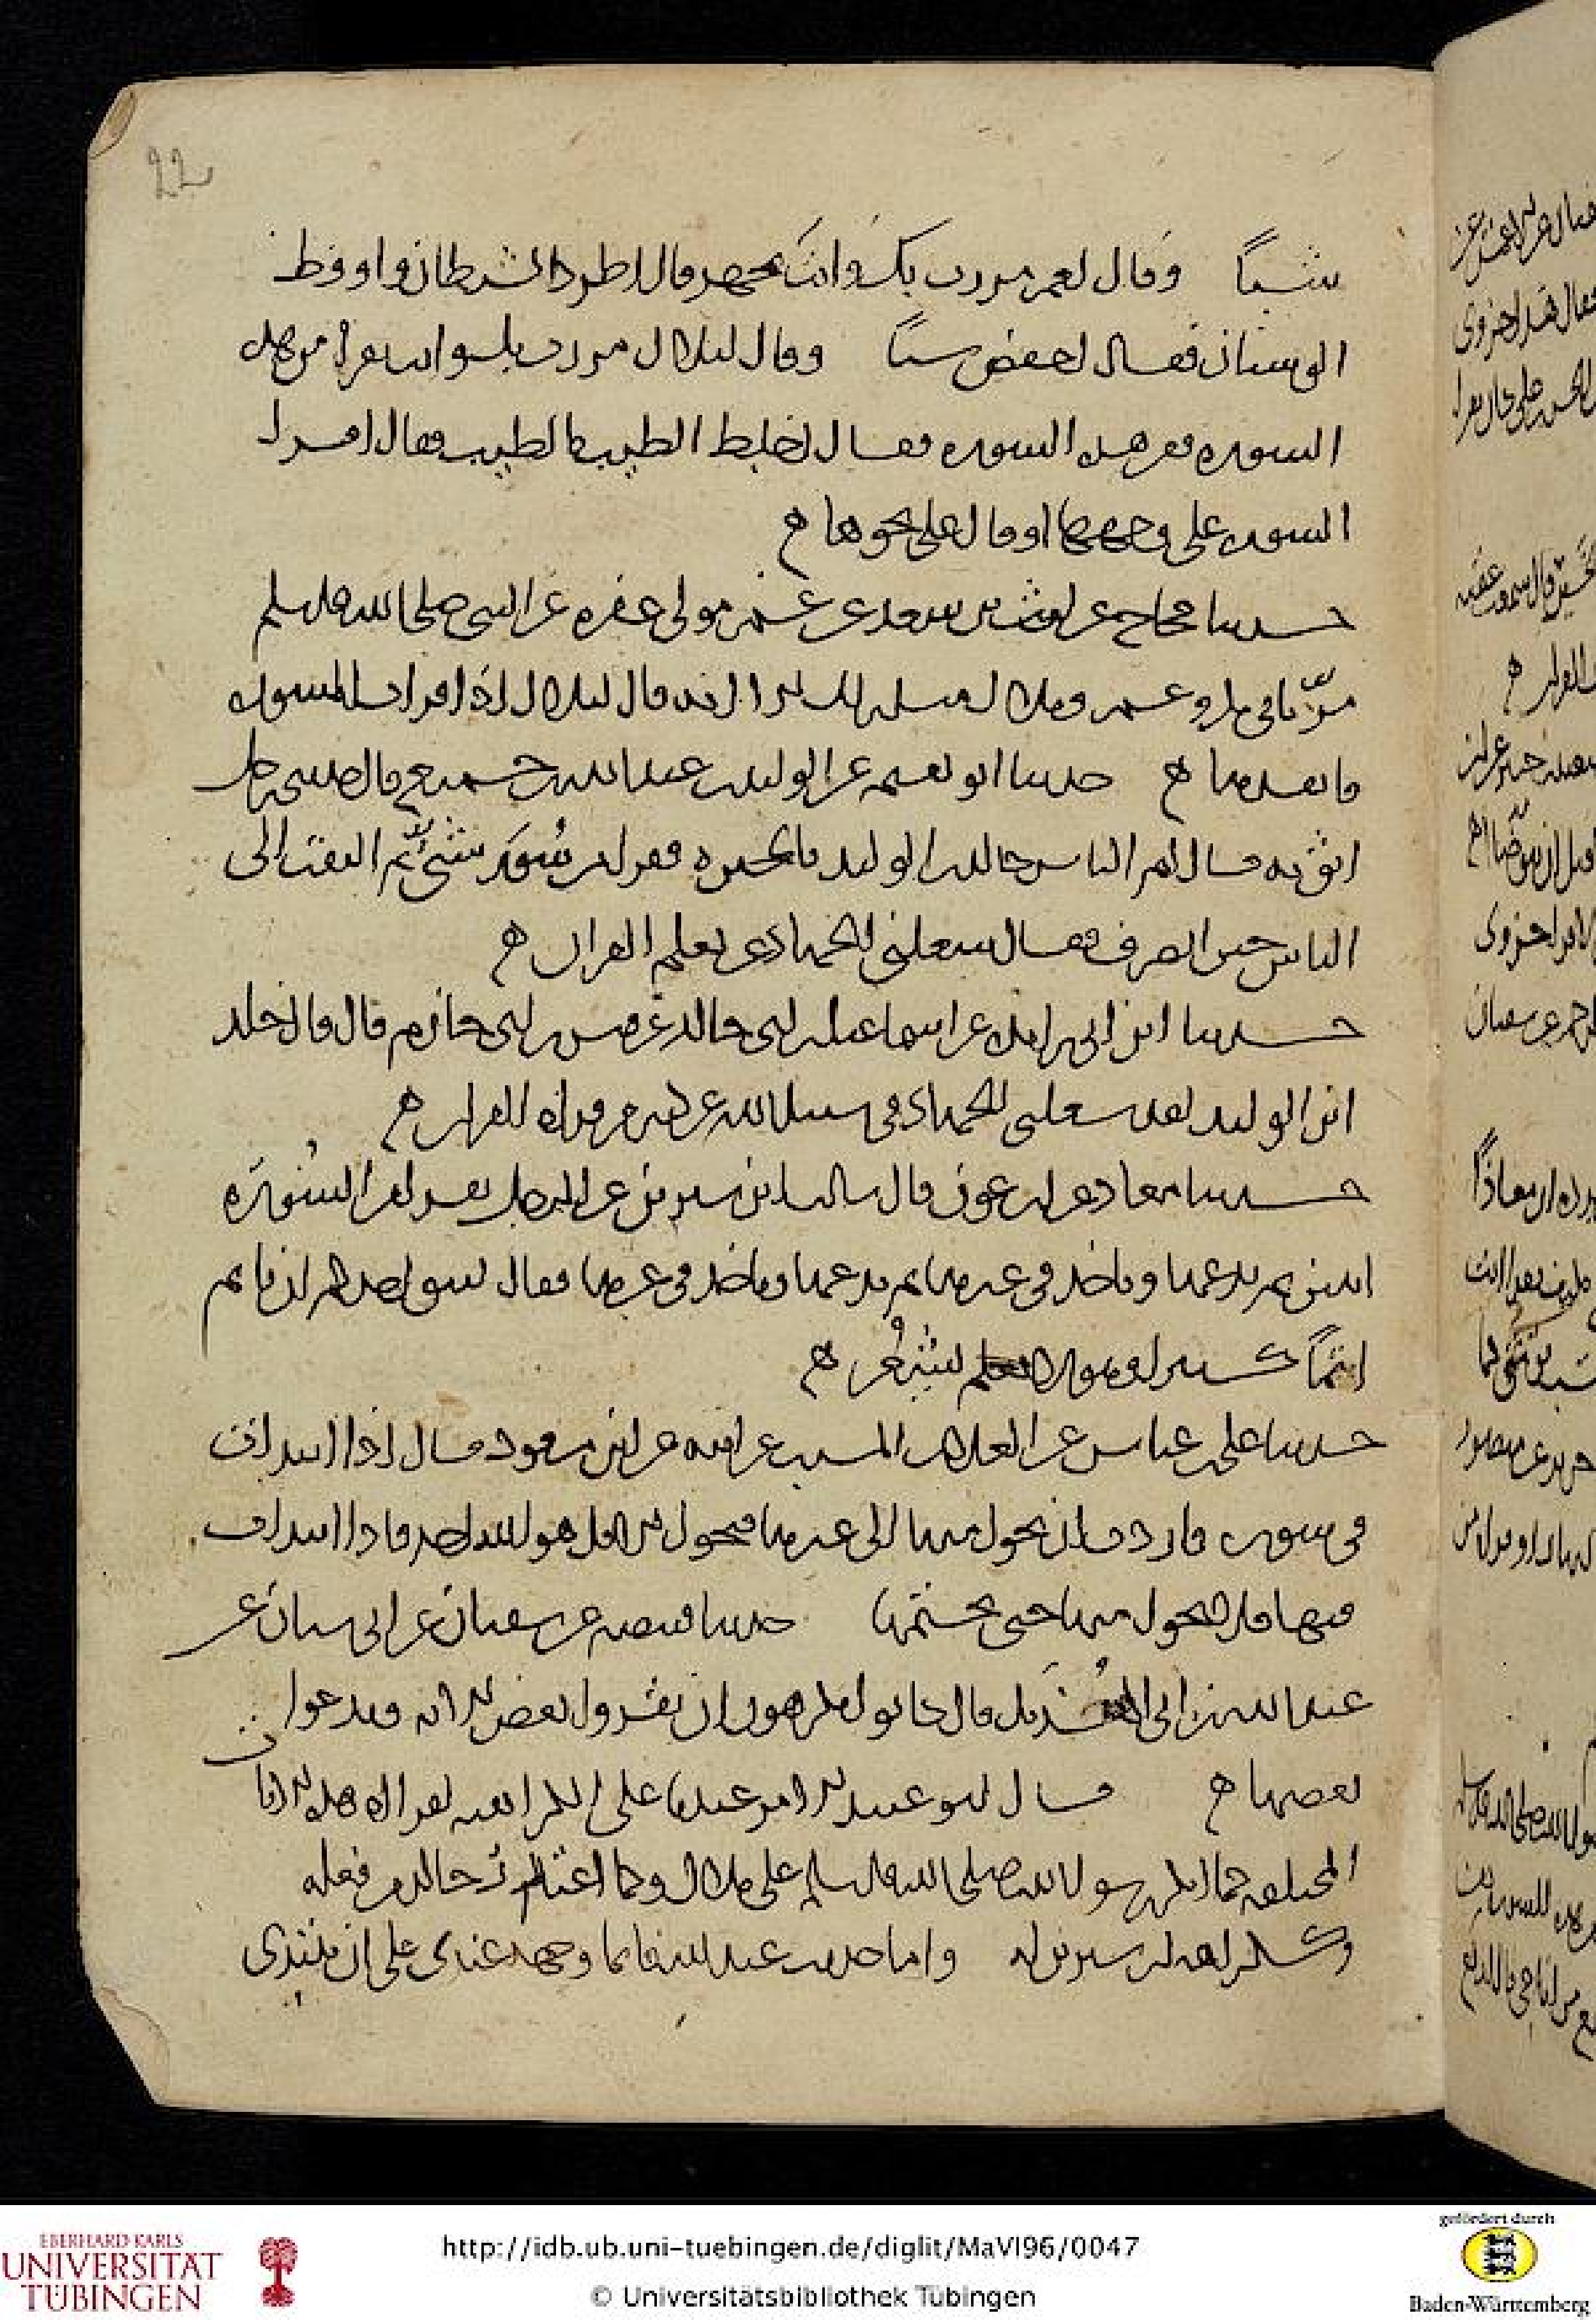 22
شيئاً وقال لعمر مررت بك وانت تجهر فقال اطرد الشيطان واوقظ
الوسنان فقال اخفض شيئاً وقال لبلال مررت بك وانت تقرأ من هذه
السورة ومن هذه السورة فقال اخلط الطيب بالطيب فقال اقرأ
السورة على وجهها او قال على نحوها ه
حدثنا حجاج عن ليث بن سعد عن عمر مولى غفرة عن النبي صلى الله عليه وسلم
مرّ بابي بكر وعمر وبلال مثل ذلك الا انه قال لبلال اذا قرات السورة
فانفدها ه حدثنا ابو نعيم عن الوليد بن عبد الله بن جميع قال حدثني رجل
اثق به قال ام الناس خالد بن الوليد بالحيرة فقرا من سُوَر شتى ثم التفت الى
الناس حين انصرف فقال شغلني الجهاد عن تعلم القران ه
حدثنا ابن ابي زايدة عن اسماعيل بن ابي خالد عن قيس بن ابي حازم قال قال خالد
ابن الوليد لقد شغلني الجهاد في سبيل الله عن كثير من قراة القران ه
حدثنا معاذ عن ابن عون قال سالت ابن سيرين عن الرجل يقرا من السُورَة
ايتين ثم يدعها وياخذ في غيرها ثم يدعها وياخذ في غيرها فقال ليتق احدكم ان ياثم
اثماً كبيرا وهو لا يشعُر ه
حدثنا علي عياش عن العلاء بن المسيب عن ابن مسعود قال اذا ابتدات
في سورة فاردت ان تحول منها الى غيرها فتحول الى قل هو الله احد فاذا ابتدات
فيها فلا تتحول منها حتى تختمها حدثنا قبيصة عن سفيان عن ابي سنان عن
عبد الله بن ابي الهُذَيل قال كانوا يكرهون ان يقروا بعض الاية ويدعوا
بعضها ه قال ابو عبيد الامر عندنا على الكراهية لقراة هذه الايات
المختلفة كما انكر رسول الله صلى الله عليه وسلم على بلال وكما اعتذر خالد من فعله
وكراهة ابن سيرين له واما حديث عبد الله فانما وجهه عندي على ان يبتدي
http://idb.ub.uni-tuebingen.de/diglit/MaVI96/0047
© Universitätsbibliothek Tübingen
EBERHARD KARLS
UNIVERSITÄT
TÜBINGEN
gefördert durch
Baden-Württemberg